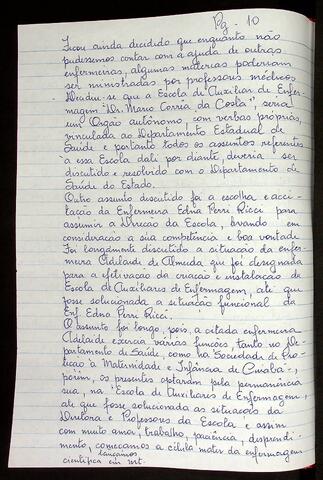 Pg - 10
Ficou ainda decidido que enquanto não
pudéssemos contar com a ajuda de outras
enfermeiras, algumas matérias poderiam
ser ministradas por professores médicos
Decidiu-se que a Escola de Auxiliar de Enfer-
magem "Dr. Mario Corrêa da Costa", seria
um Orgão autônomo, com verbas próprias,
vinculada ao Departamento Estadual de
Saúde e portanto todos os assuntos referentes
à essa Escola dali por diante, deveria ser
discutido e resolvido com o Departamento de
Saúde do Estado.
Outro assunto discutido foi a escolha e acei-
tação da Enfermeira Edna Perri Ricci para
assumir a Direção da Escola, levando em
consideração a sua competência e boa vontade
Foi longamente discutido a situação da enfer-
meira Adelaide de Almeida que foi designada
para a efetivação da criação e instalação da
Escola de Auxiliares de Enfermagem, até que
fosse solucionada a situação funcional da
Enf. Edna Perri Ricci.
O assunto foi longo, pois, a citada enfermeira
Adelaide exercia várias funções, tanto no De-
partamento de Saúde, como na Sociedade de Pro-
teção à Maternidade e Infância de Cuiabá,
porém, os presentes optaram pela permanência
sua, na Escola de Auxiliares de Enfermagem,
até que fosse solucionada as situações da
Diretora e Professores da Escola e assim
com muito amor, trabalho, paciência, desprendi-
mento, começamos a célula mater da enfermagem
lançamos
científica em MT.